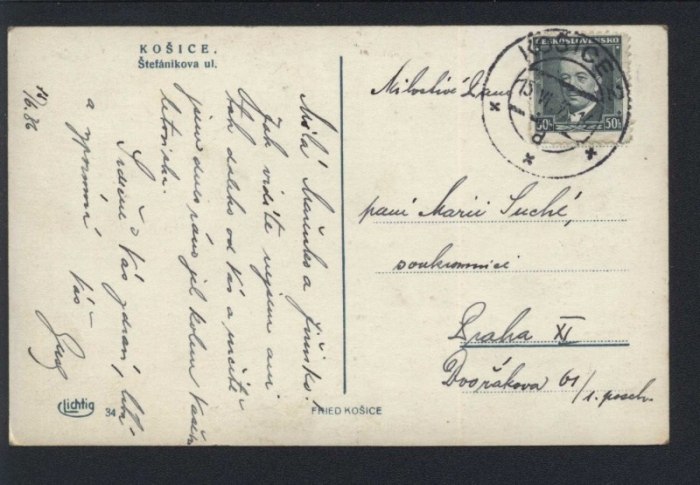 KOŠICE.
Štefánikova ul.
14/6.36
Milá Mařenko a Jiřinko!
Jak vidíte nejsem ani
tak daleko od Vás a určitě
jsem dnes ráno jel kolem Vašeho
letoviska.
Srdečně Vás zdraví, líbá
a vzpomíná
Váš
Lichtig
34
FRIED KOŠICE
ČESKOSLOVENSKO
50h 50h
KOŠICE 2
Milostivá paní
paní Marii Suché,
soukromnice
Praha XI
Dvořákova 61/1. posch.